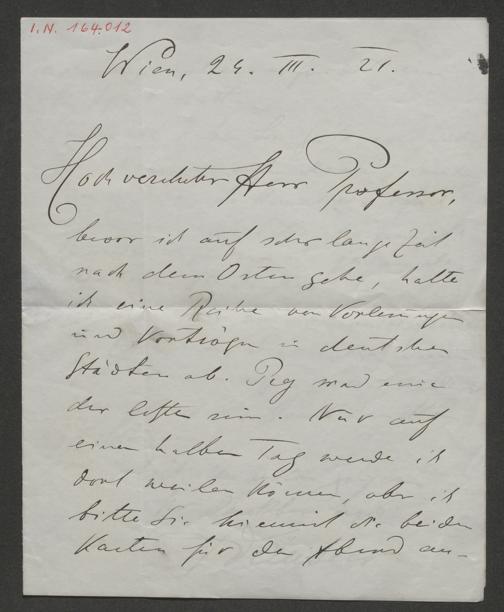 I.N. 164.012
Wien, 24. III. 21.
Hochverehrter Herr Professor,
bevor ich auf sehr lange Zeit
nach dem Osten gehe, halte
ich eine Reihe von Vorlesungen
und Vorträgen in deutschen
Städten ab. Prag wird eine
der letzten sein. Nur auf
einen halben Tag werde ich
dort weilen können, aber ich
bitte Sie hiemit die beiden
Karten für den Abend an-